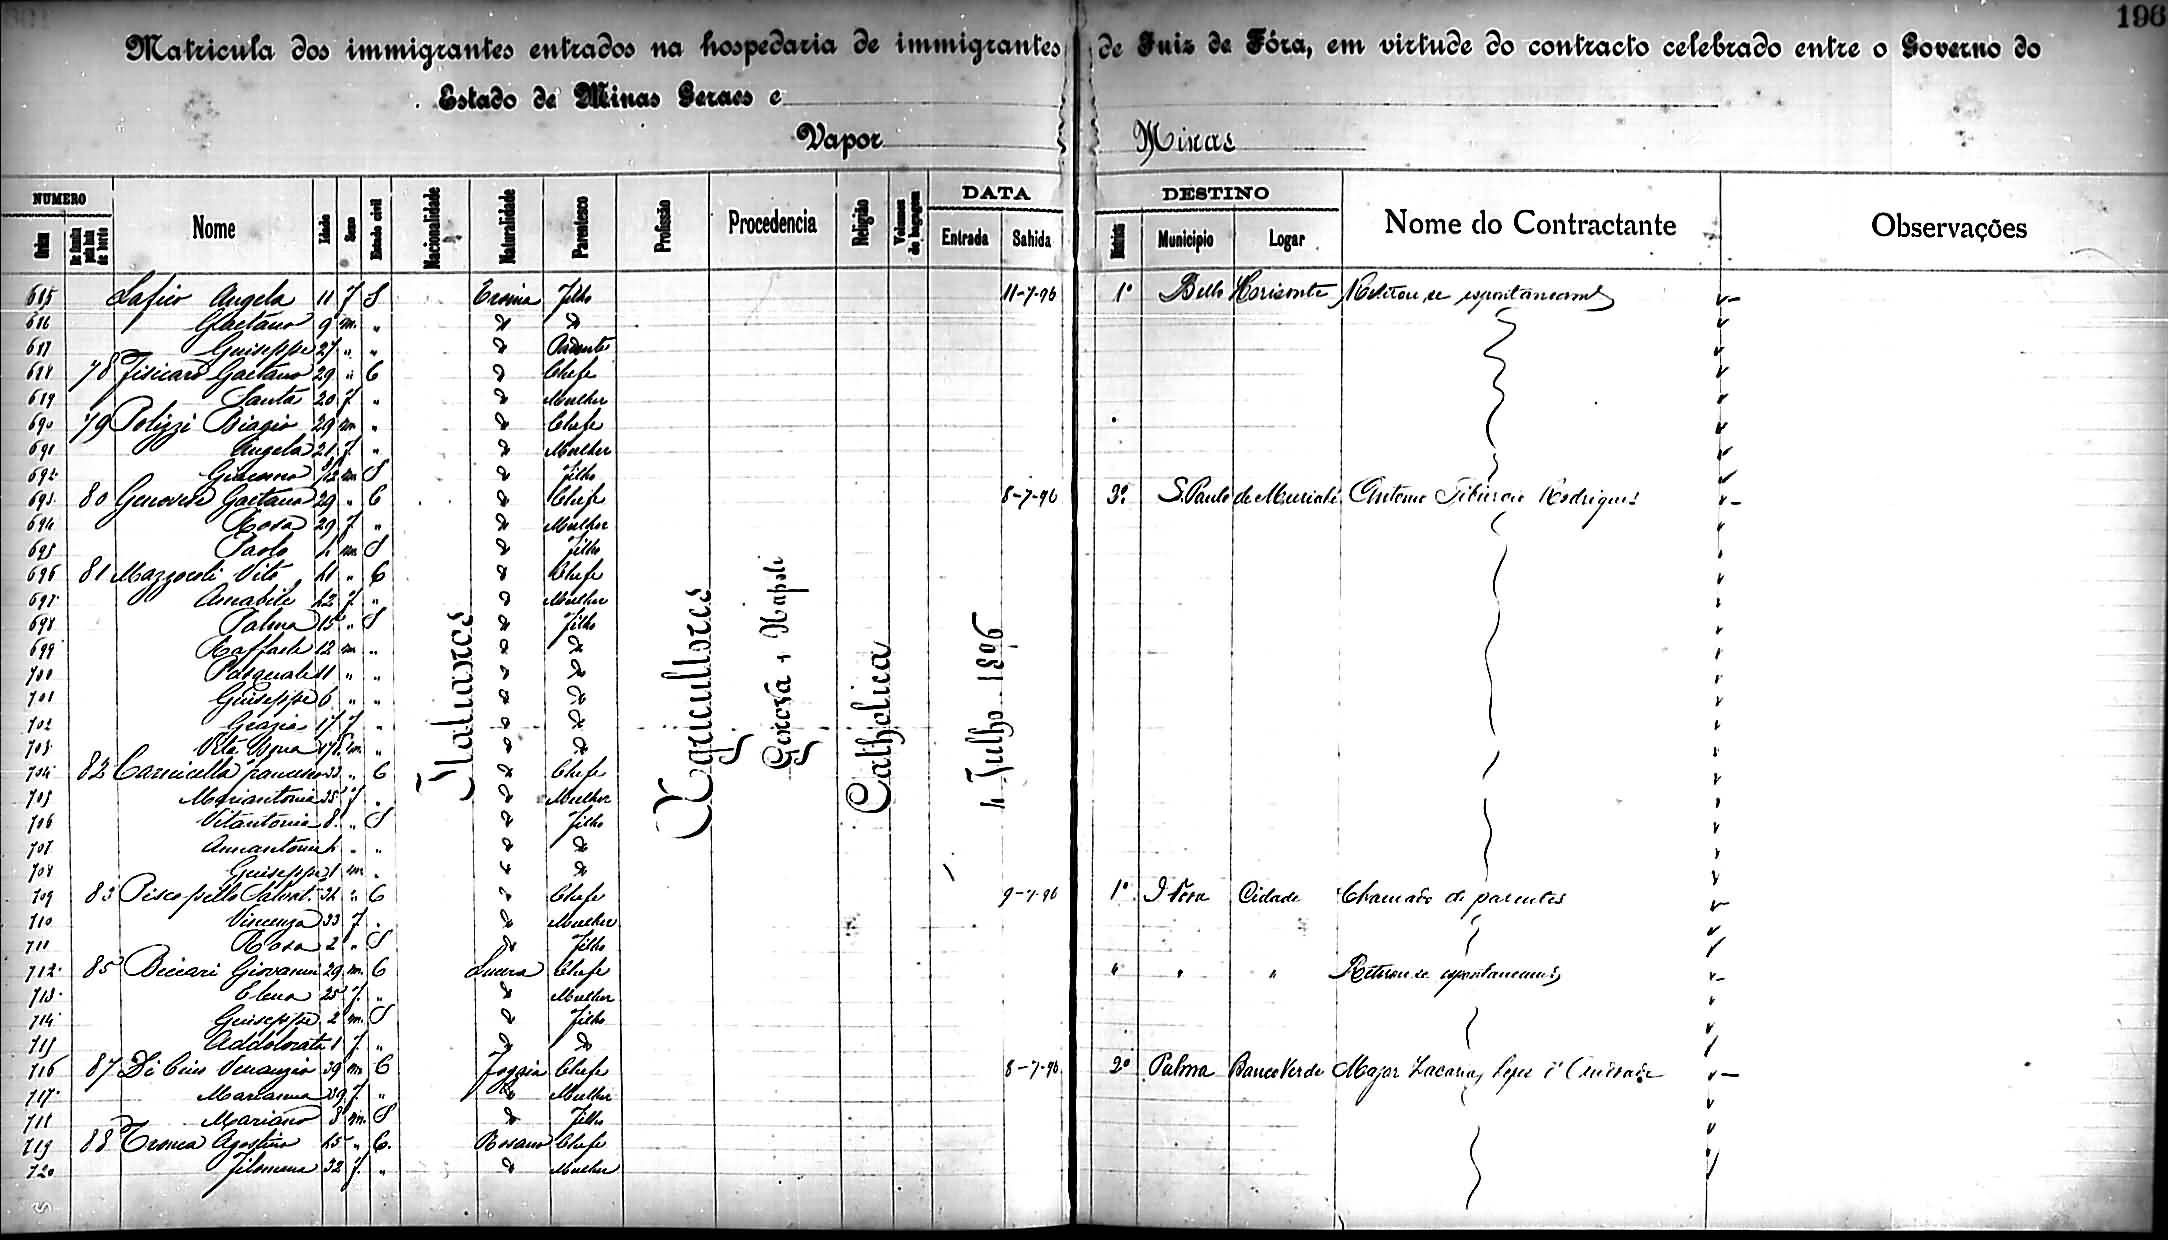 196
Matricula dos immigrantes entrados na hospedaria de immigrantes de Juiz de Fóra, em virtude do contracto celebrado entre o Governo do
Estado de Minas Geraes e
Vapor Minas
NUMERO Nome Idade Sexo Estado civil Nacionalidade Naturalidade Parentesco Profissão Procedencia Religião Volumes de bagagem DATA DESTINO Nome do Contractante Observações
Ordem Entrada Sahida Districto Municipio Logar
Italianos Agricultores Genova e Napoli Catholica 4 Julho 1896
685 Lafico Angela 11 f S Filho 11-7-96 1º Bello Horisonte Retirou se espontaneam
686 Gaetano 9 m. " " "
687 Guiseppe 27 " " " Parente
688 78 Fisicaro Gaetano 29 " C " Chefe
689 Santa 20 f. " " Mulher
690 79 Polizzi Biagio 29 m " " Chefe
691 Angela 21 f. " " Mulher
692 Giacomo m S " Filho
693 80 Genovese Gaetano 29 " C " Chefe 8-7-96 3º S. Paulo de Muriahé Antonio Tiburcio Rodrigues
694 Rosa 29 f. " " Mulher
695 Paolo 4 m S " Filho
696 81 Mazzocoli Vito 41 " C " Chefe
697 Amabile 42 f. " " Mulher
698 Palma 15 " S " Filho
699 Raffaele 12 m " " "
700 Pasquale 11 " " " "
701 Guiseppe 6 " " " "
702 Grazia 17 f " " "
703 Vito m. " " "
704 82 Carnicella Francesco 33 " C " Chefe
705 Mariantonia 35 f " " Mulher
706 Vitantonia 8 " S " Filho
707 Annantonia " " " "
708 Guiseppe 1 m " " "
709 83 Piscopello Salvat. " C " Chefe 9-7-96 1º J. Fora Cidade Chamado de parentes
710 Vincenza 33 f. " " Mulher
711 Rosa 2 " S " Filho
712 85 Beccari Giovanni 29 m. C Lucera Chefe " " " Retirou se espontaneam
713 Elena 25 f. " " Mulher
714 Guiseppe 2 m. S " Filho
715 Addolorata 1 f. " " "
716 87 Di Cino Venanzio 39 m C Foggia Chefe 8-7-96 2º Palma Banco Verde Major Zacarias Lopes
717 Marianna 39 f. " " Mulher
718 Mariano 8 m. S " Filho
719 88 Tronca Agostino 45 " C. Rosano Chefe
720 Filomena 32 f. " " Mulher